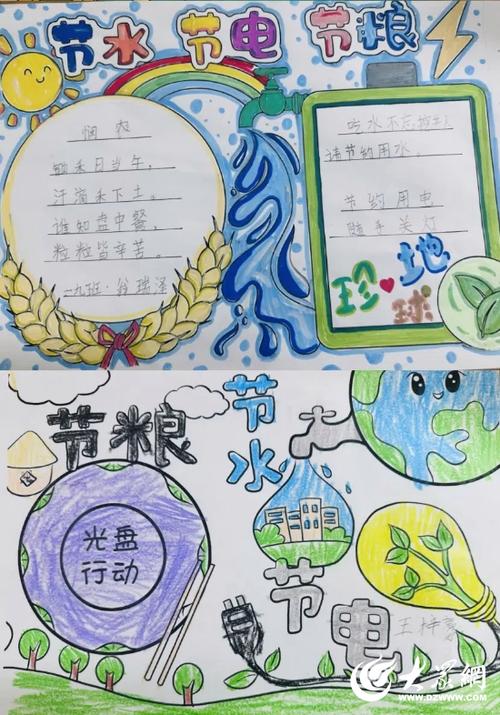 节水 节电 节粮
悯农
锄禾日当午,
汗滴禾下土。
谁知盘中餐,
粒粒皆辛苦。
一九班·瑞泽
吃水不忘挖井人
请节约用水。
节约用电
随手关灯
珍 地球
节粮
节水
光盘
行动
节电
王梓
大眾網
WWW.DZWWW.COM